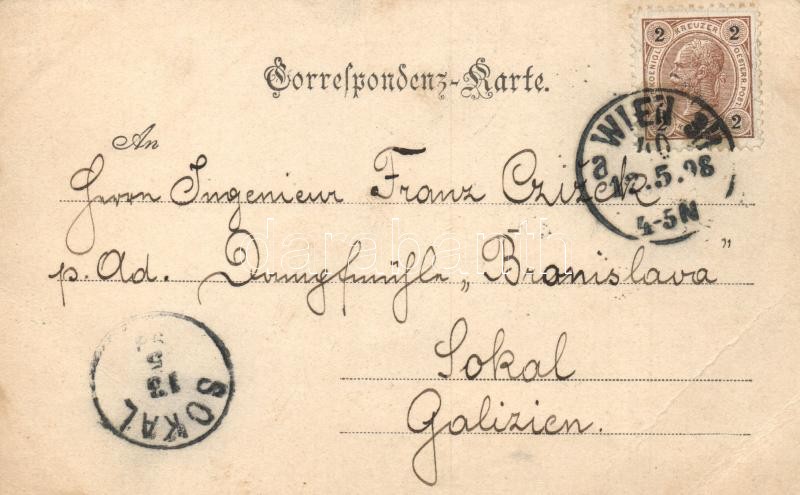 2 KREUZER 2
2 2
Correspondenz-Karte.
WIEN
12.5.98
4-5N
An
Herrn Ingenieur Franz Czižek
p. Ad. Dampfmühle „Bronislava"
darabanth
Sokal
Galizien.
SOKAL
13